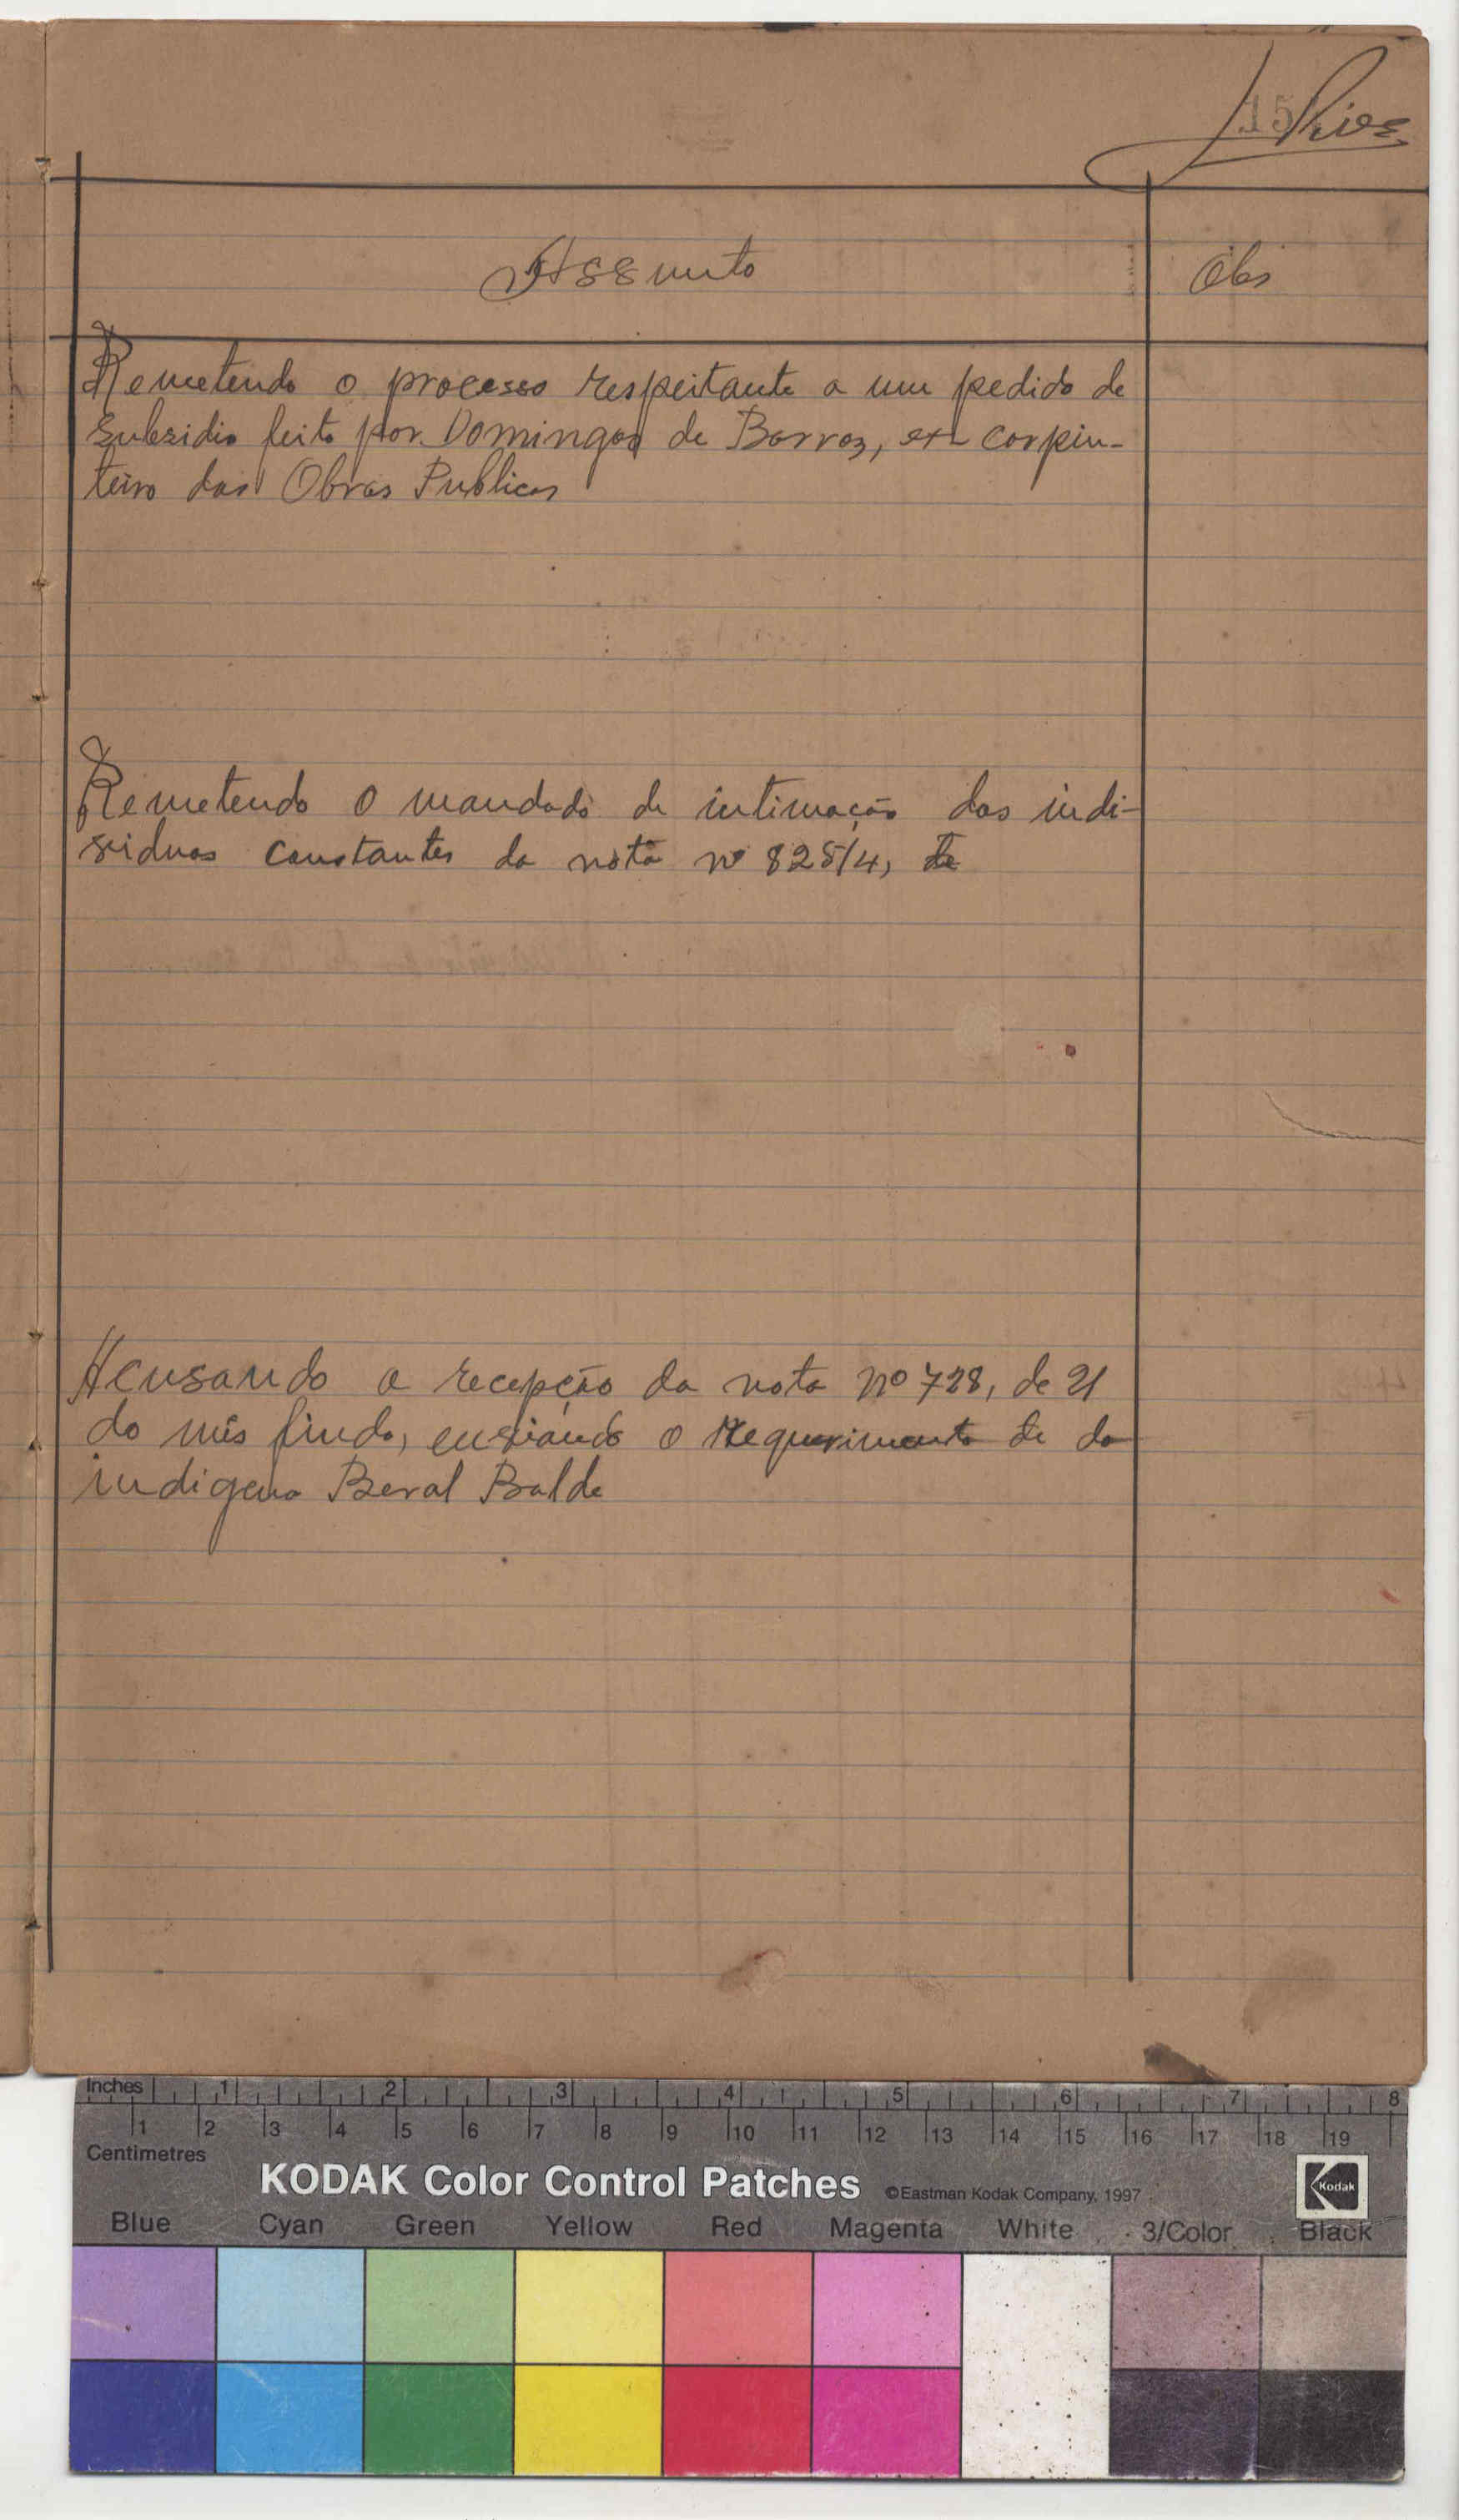 15
Assunto
Obs
Remetendo o processo respeitante a um pedido de
subsidio feito por Domingos de Barros, ex carpin-
teiro das Obras Publicas
Remetendo o mandado de intimação dos indi-
viduos constantes da nota nº 825/4, de
Acusando a recepção da nota nº 728, de 21
do mês findo, enviando o requerimento de do
indigena Beral Balde
Inches 1 2 3 4 5 6 7 8
1 2 3 4 5 6 7 8 9 10 11 12 13 14 15 16 17 18 19
Centimetres
KODAK Color Control Patches ©Eastman Kodak Company, 1997
Kodak
Blue Cyan Green Yellow Red Magenta White 3/Color Black